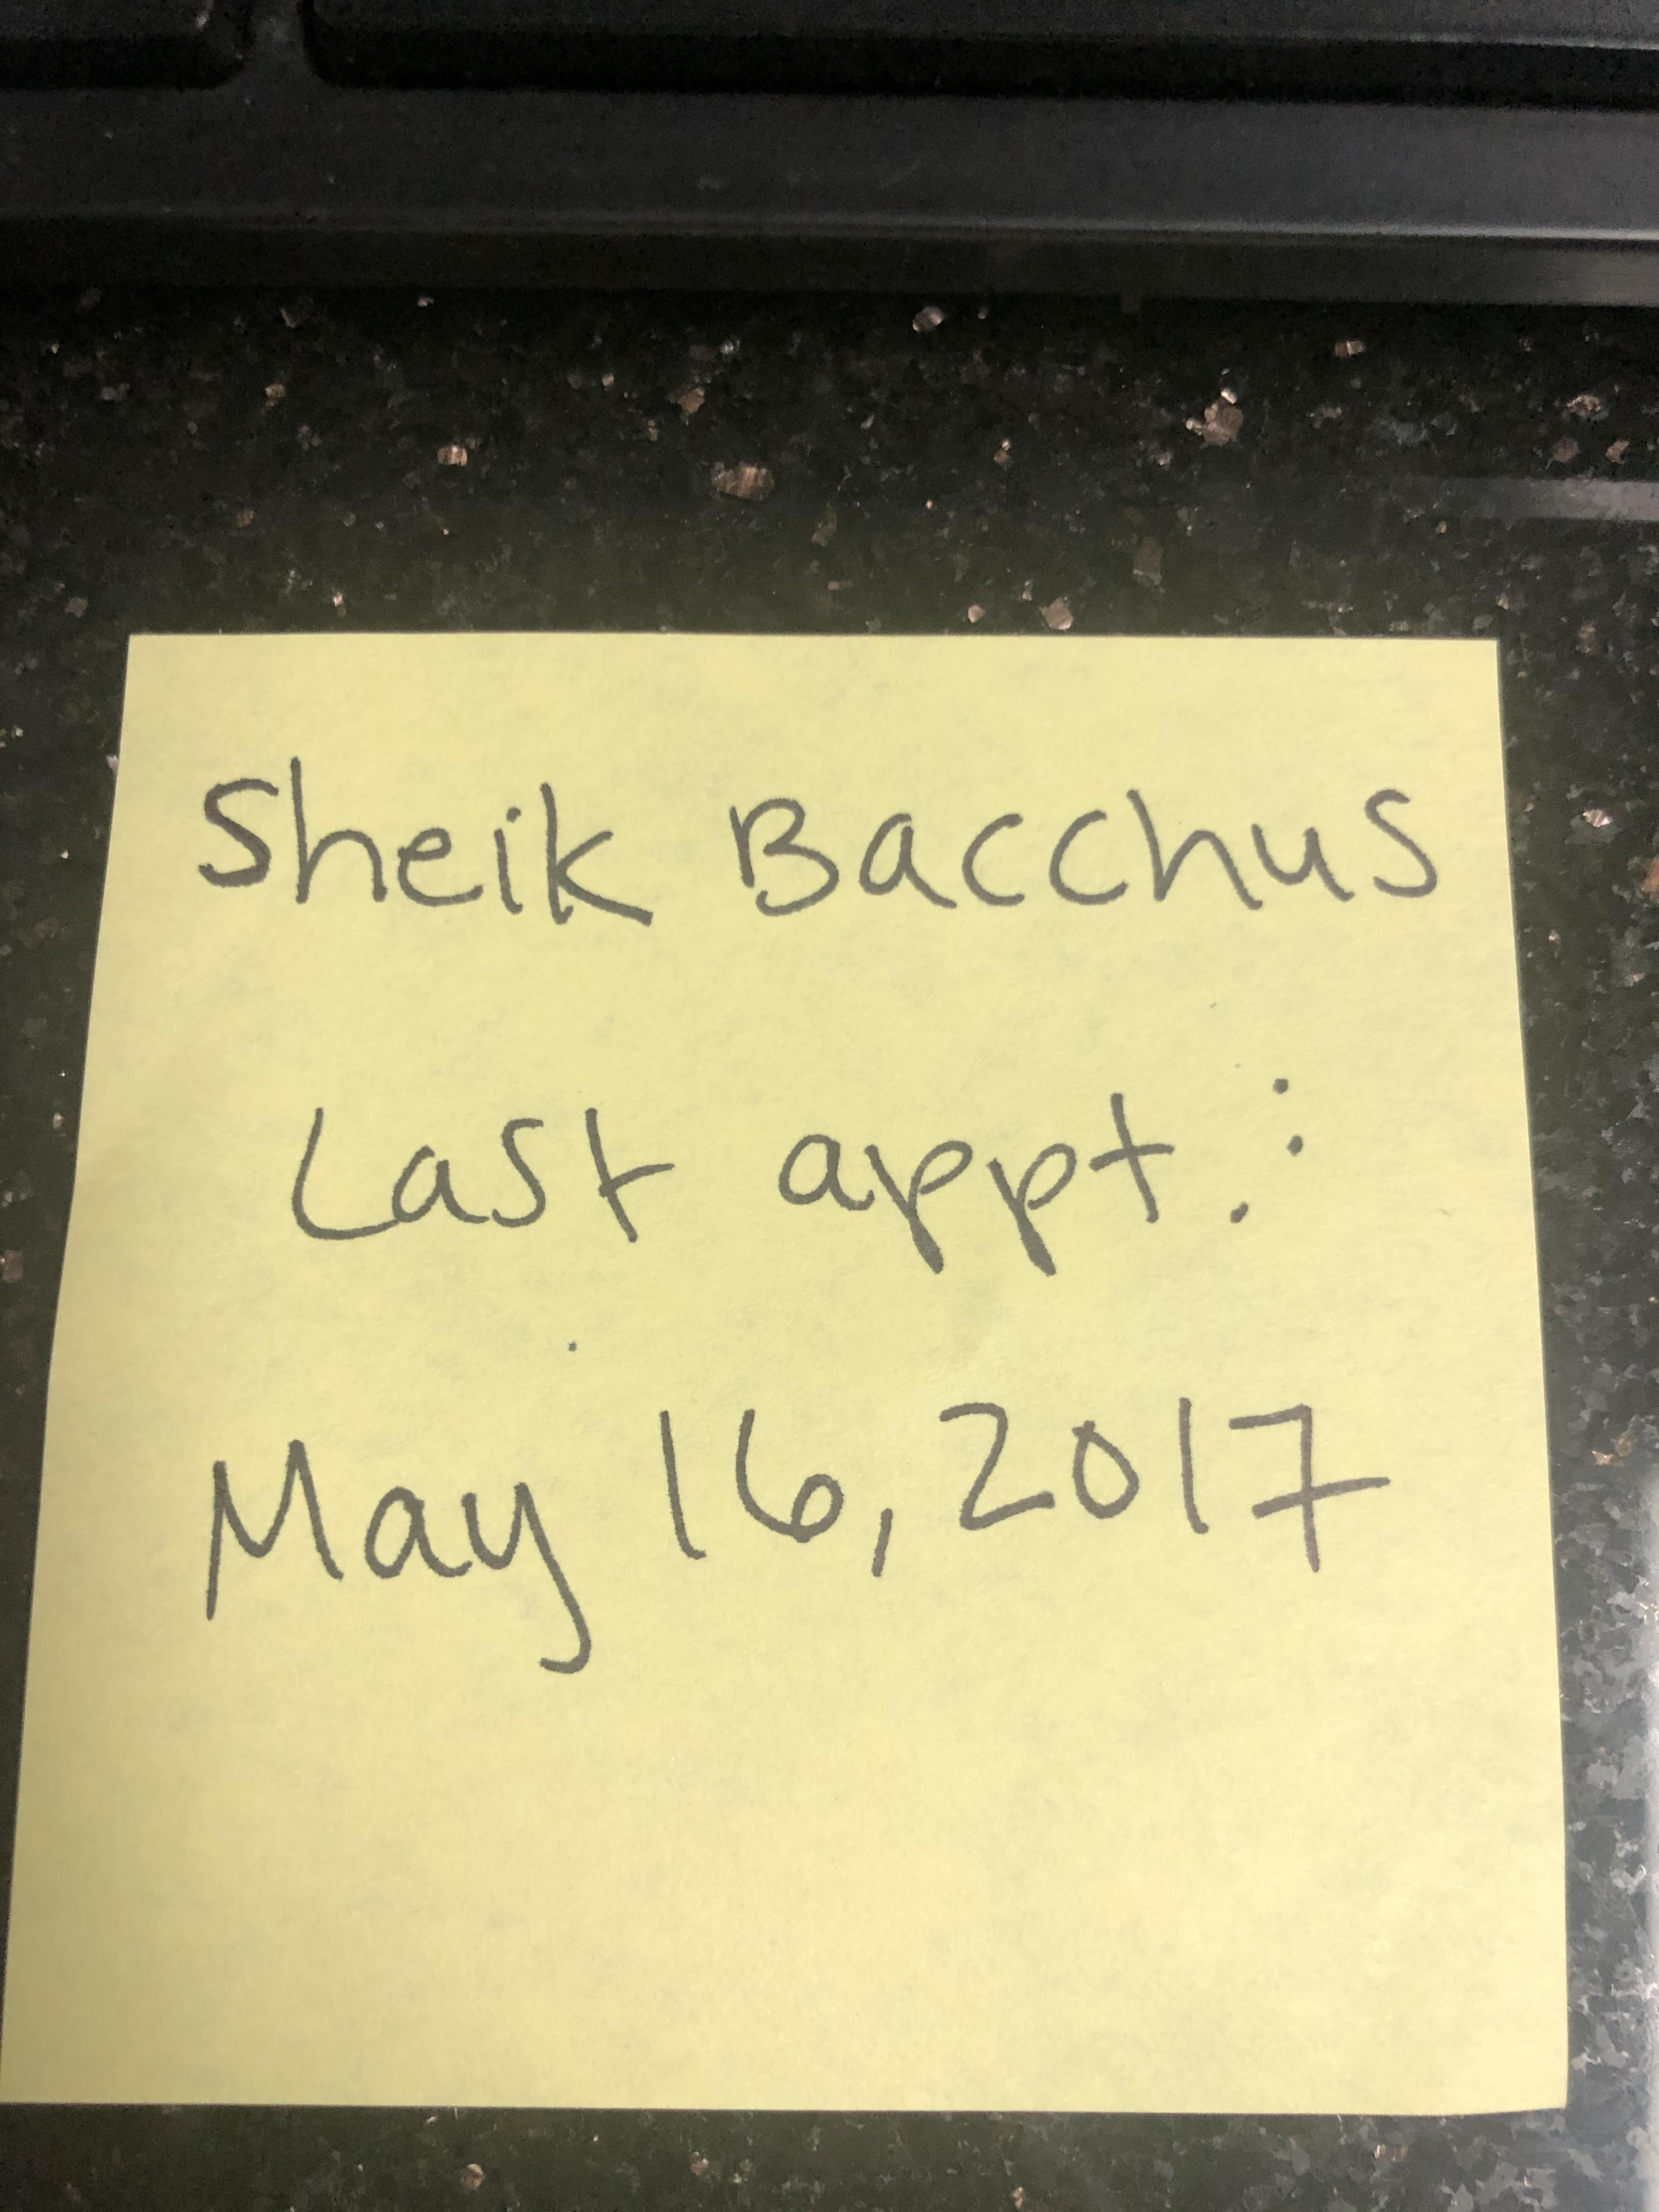 Sheik Bacchus
Last appt.:
May 16, 2017